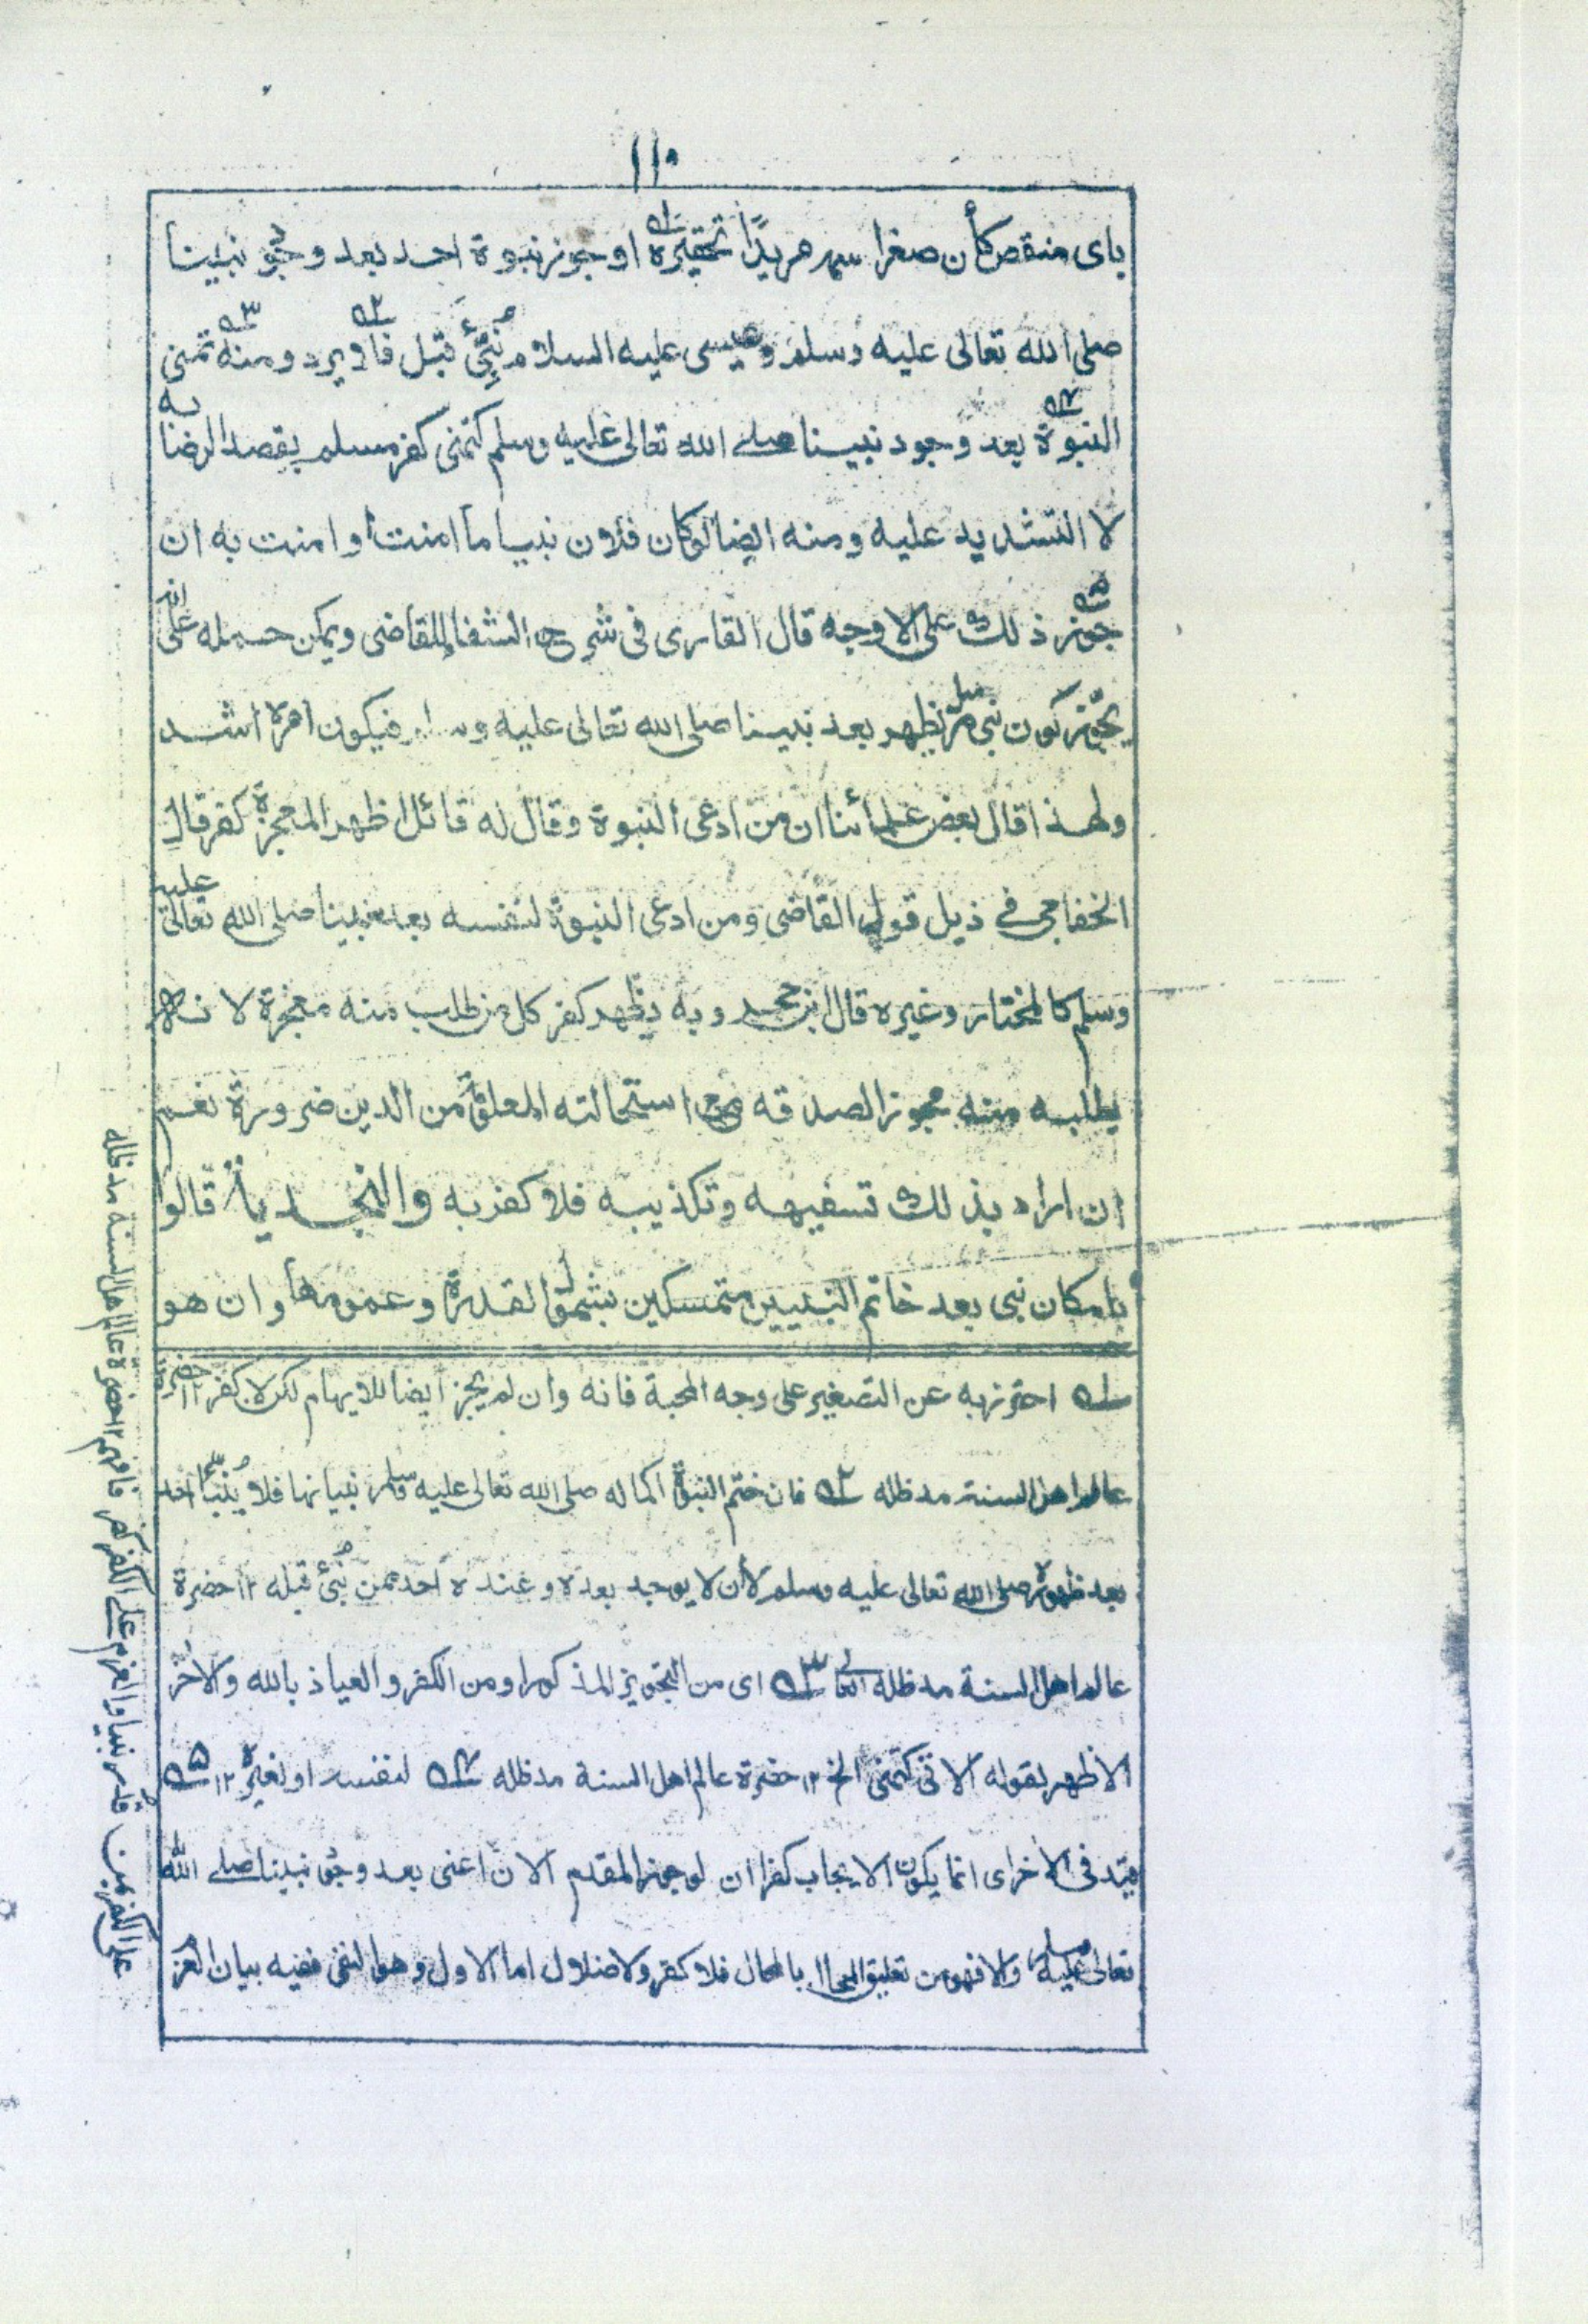 ١١٠
بای منقص كأن صغرا سمه مريدًا تحقيره اوجوزنبوة احد بعد وجود نبينا
صلى الله تعالى عليه وسلم وعيسى عليه السلام نُبِّئَ قبل فلا يرد ومنه تمنى
النبوة بعد وجود نبينا صلے الله تعالى عليه وسلم كتمنى كفر مسلم بقصد الرضا به
لا التشديد عليه ومنه ايضا لوكان فلان نبيا ما امنت أو امنت به ان
جوز ذلك على الاوجه قال القارى فى شرح الشفا للقاضى ويمكن حمله على انه
يجوّز كون نبى مرسل يظهر بعد نبينا صلى الله تعالى عليه وسلم فيكون امره اشد
ولهذا قال بعض علمائنا ان من ادعى النبوة وقال له قائل اظهر المعجزة كفر قال
الخفاجى فے ذيل قول القاضى ومن ادعى النبوة لنفسه بعد نبينا صلى الله تعالى عليه
وسلم كالمختار وغيره قال ابن حجر وبه يظهر كفر كل من طلب منه معجزة لانه
يطلبه منه مجوزا لصدقه مع استحالته المعلومة من الدين ضرورة نعم
ان اراد بذلك تسفيهه وتكذيبه فلا كفر به والنجدية قالوا
بامكان نبى بعد خاتم النبيين متمسكين بشمول القدرة وعمومها وان هو
١ؔ احترز به عن التصغير على وجه المحبة فانه وان لم يجز ايضا للايهام لكن لا كفر ١٢ حضرة
عالم اهل السنة مدظله ٢ؔ فان ختم النبوة اكماله صلى الله تعالى عليه وسلم بنيانها فلا يُنَبَّأ احد
بعد ظهوره صلى الله تعالى عليه وسلم لا أن لا يوجد بعده وعنده احد ممن نُبِّئَ قبله ١٢ حضرة
عالم اهل السنة مدظله العالى ٣ؔ اى من التجويز المذكور او من الكفر والعياذ بالله والاخر
الاظهر بقوله الاتى كتمنى الخ ١٢ حضرة عالم اهل السنة مدظله ٤ؔ لنفسه او لغيره ١٢ ٥ؔ
قيد فى الاخر اى انما يكون الايجاب كفرا ان لو جوز المقدم الان اعنى بعد وجود نبينا صلے الله
تعالى عليه وسلم والا فهو من تعليق المحال بالمحال فلا كفر ولا ضلال اما الاول وهو النفى ففيه بيان العزم
على الكفر بمن قُدِّر نبيا والعزم على الكفر كفر فافهم ١٢ حضرة عالم اهل السنة مدظله